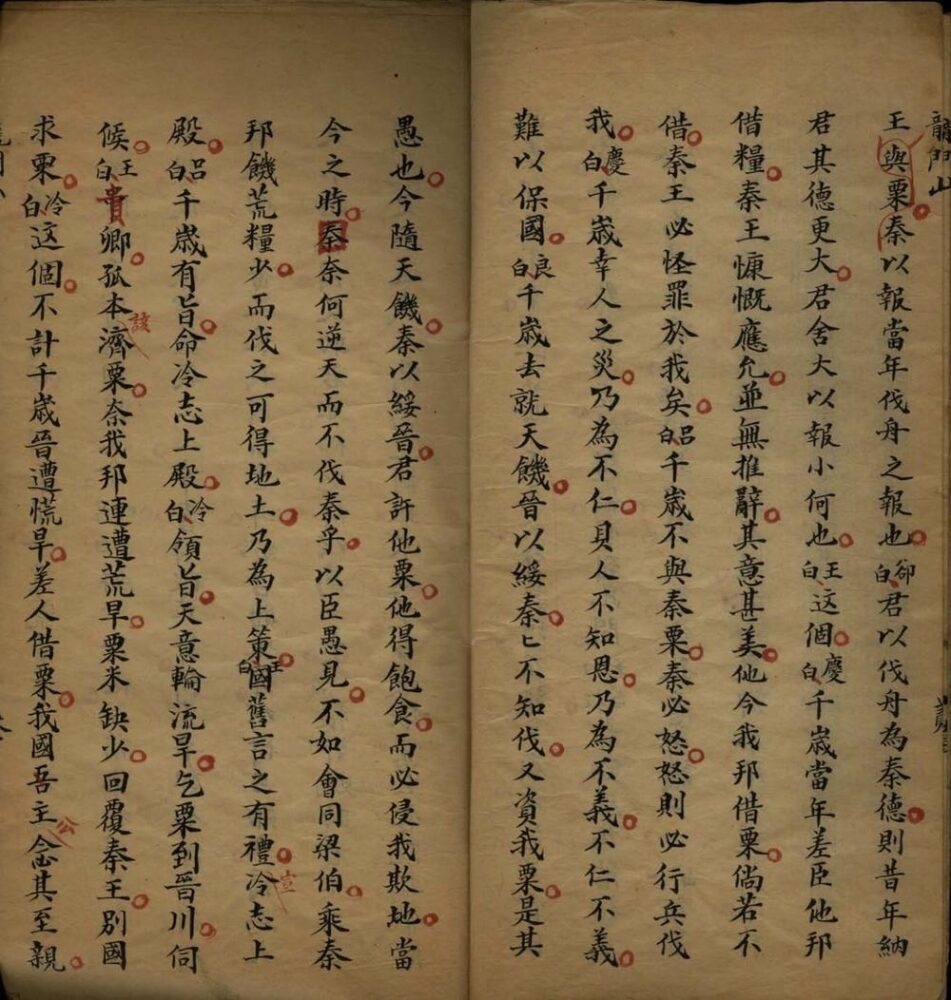 龍門山
王與粟秦以報當年伐舟之報也郤白君以伐舟為秦德則昔年納
君其德更大君舍大以報小何也王白這個慶白千歲當年差臣他邦
借糧秦王慷慨應允並無推辭其意甚美他今我邦借粟倘若不
借秦王必怪罪於我矣呂白千歲不與秦粟秦必怒怒則必行兵伐
我慶白千歲幸人之災乃為不仁貝人不知恩乃為不義不仁不義
難以保國良白千歲去就天饑晉以綏秦匕不知伐又資我粟是其
愚也今隨天饑秦以綏晉君許他粟他得飽食而必侵我欺地當
今之時秦奈何逆天而不伐秦乎以臣愚見不如會同梁伯乘秦
邦饑荒糧少而伐之可得地土乃為上策王白國舊言之有禮宣冷志上
殿呂白千歲有旨命冷志上殿冷白領旨天意輪流旱乞粟到晉川伺
候王白貴卿孤本該濟粟奈我邦連遭荒旱粟米缺少回覆秦王別國
求粟冷白這個不計千歲晉遭慌旱差人借粟我國吾主公念其至親